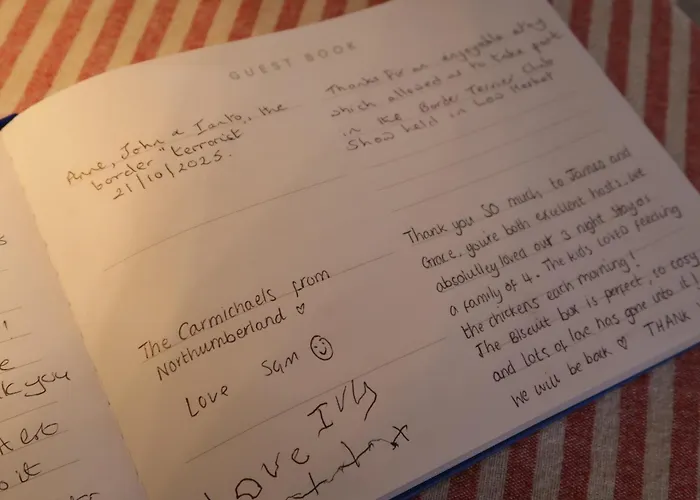 GUEST BOOK
Anne, John & Ianto, the
border "terrorist
21/10/2025.
Thanks for an enjoyable stay
which allowed us to take part
in the Border Terrier Club
Show held in Low Hesket
The Carmichaels from
Northumberland ♡
Love Sam ☺
Love Ivy
Thank you SO much to James and
Grace, you're both excellent hosts. We
absolutley loved our 3 night stay as
a family of 4. The kids LOVED feeding
the chickens each morning!
The Biscuit box is perfect, so cosy
and lots of love has gone into it!
We will be back ♡ THANK
s
!
e
k you
it